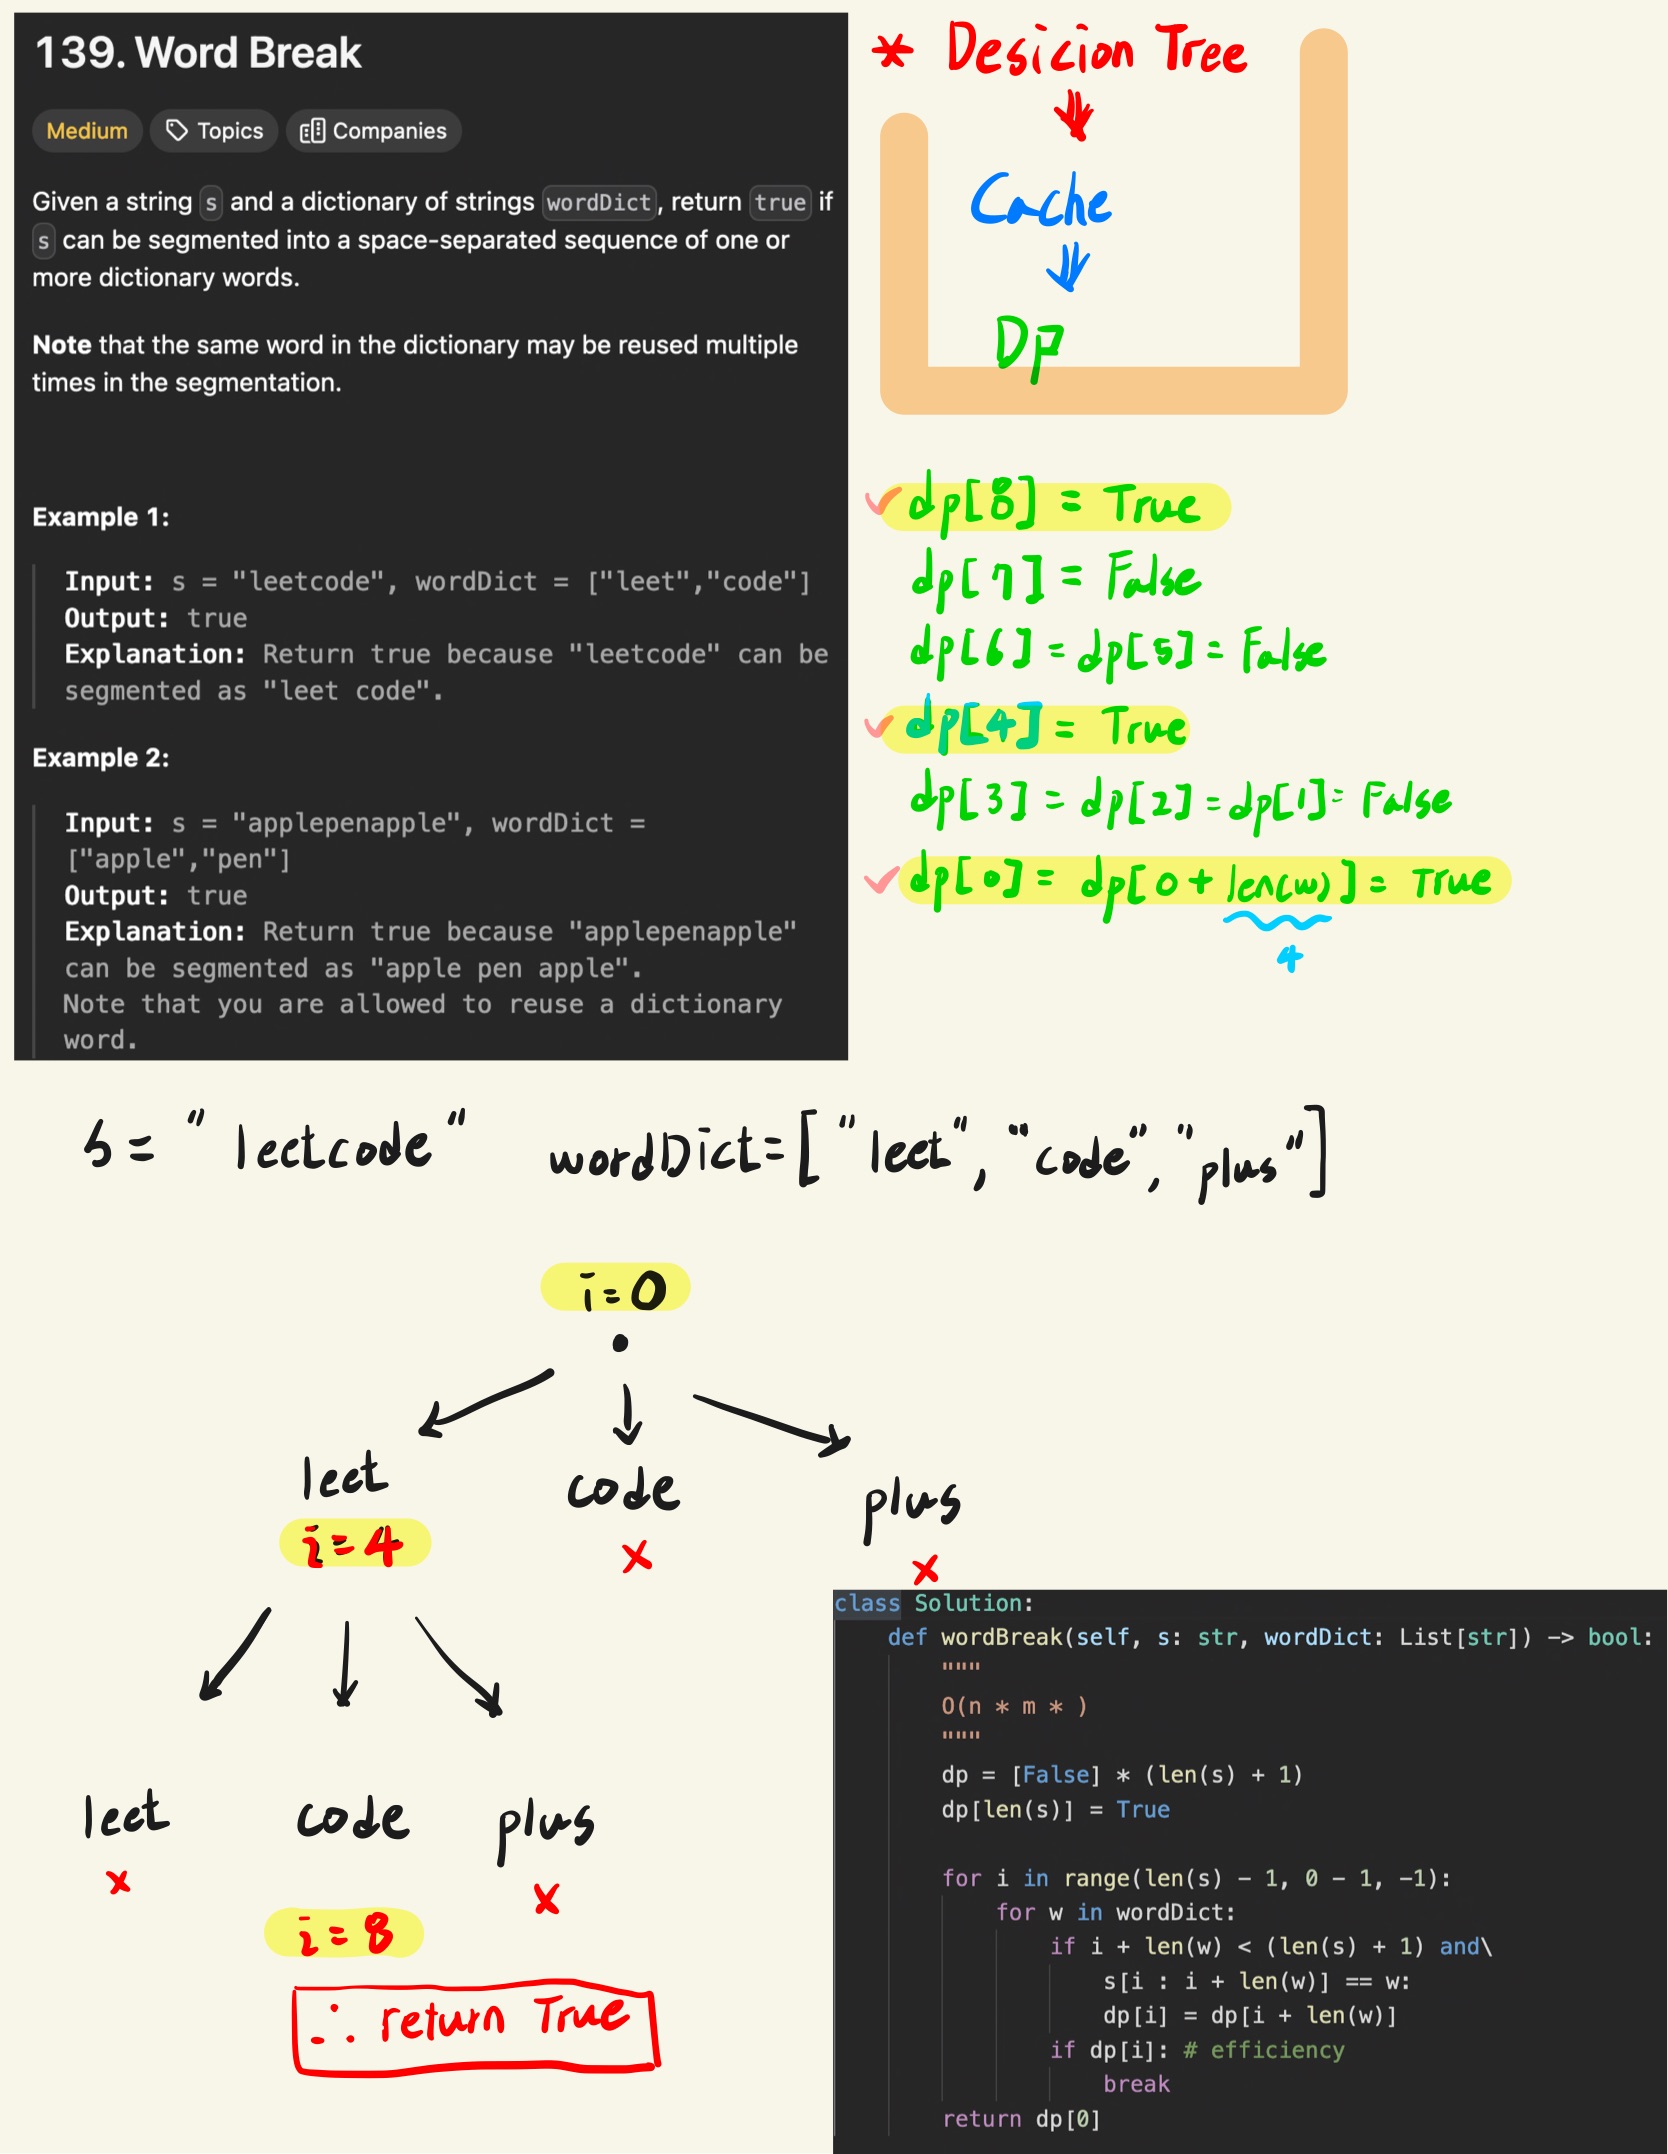 139. Word Break
Medium
Topics
Companies
Given a string s and a dictionary of strings wordDict, return true if
s can be segmented into a space-separated sequence of one or
more dictionary words.
Note that the same word in the dictionary may be reused multiple
times in the segmentation.
Example 1:
Input: s = "leetcode", wordDict = ["leet","code"]
Output: true
Explanation: Return true because "leetcode" can be
segmented as "leet code".
Example 2:
Input: s = "applepenapple", wordDict =
["apple","pen"]
Output: true
Explanation: Return true because "applepenapple"
can be segmented as "apple pen apple".
Note that you are allowed to reuse a dictionary
word.
* Desicion Tree
Cache
Dp
dp[8] = True
dp[7] = False
dp[6] = dp[5] = False
dp[4] = True
dp[3] = dp[2] = dp[1] = False
dp[0] = dp[0 + len(w)] = True
4
s = "leetcode" wordDict = ["leet", "code", "plus"]
i=0
leet
code
plus
i=4
x
x
leet
code
plus
x
x
i=8
∴ return True
class Solution:
def wordBreak(self, s: str, wordDict: List[str]) -> bool:
"""
O(n * m * )
"""
dp = [False] * (len(s) + 1)
dp[len(s)] = True
for i in range(len(s) - 1, 0 - 1, -1):
for w in wordDict:
if i + len(w) < (len(s) + 1) and\
s[i : i + len(w)] == w:
dp[i] = dp[i + len(w)]
if dp[i]: # efficiency
break
return dp[0]